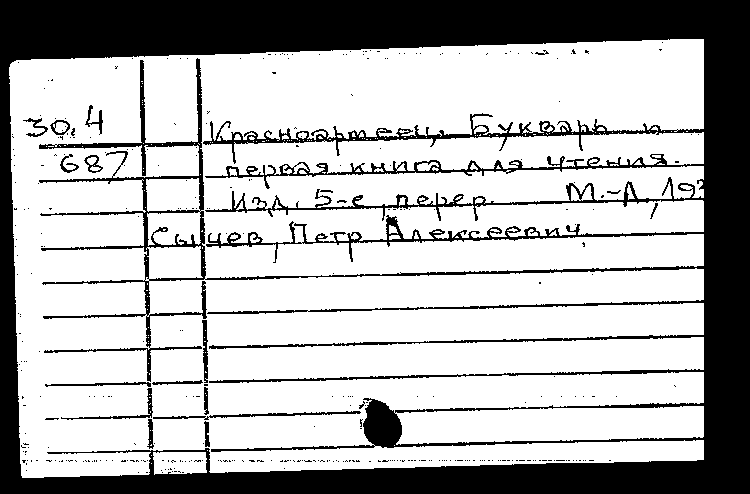 30.4 Красноармеец. Букварь и
687 первая книга для чтения.
Изд. 5-е, перер. М.-Л., 193
Сычев, Петр Алексеевич.